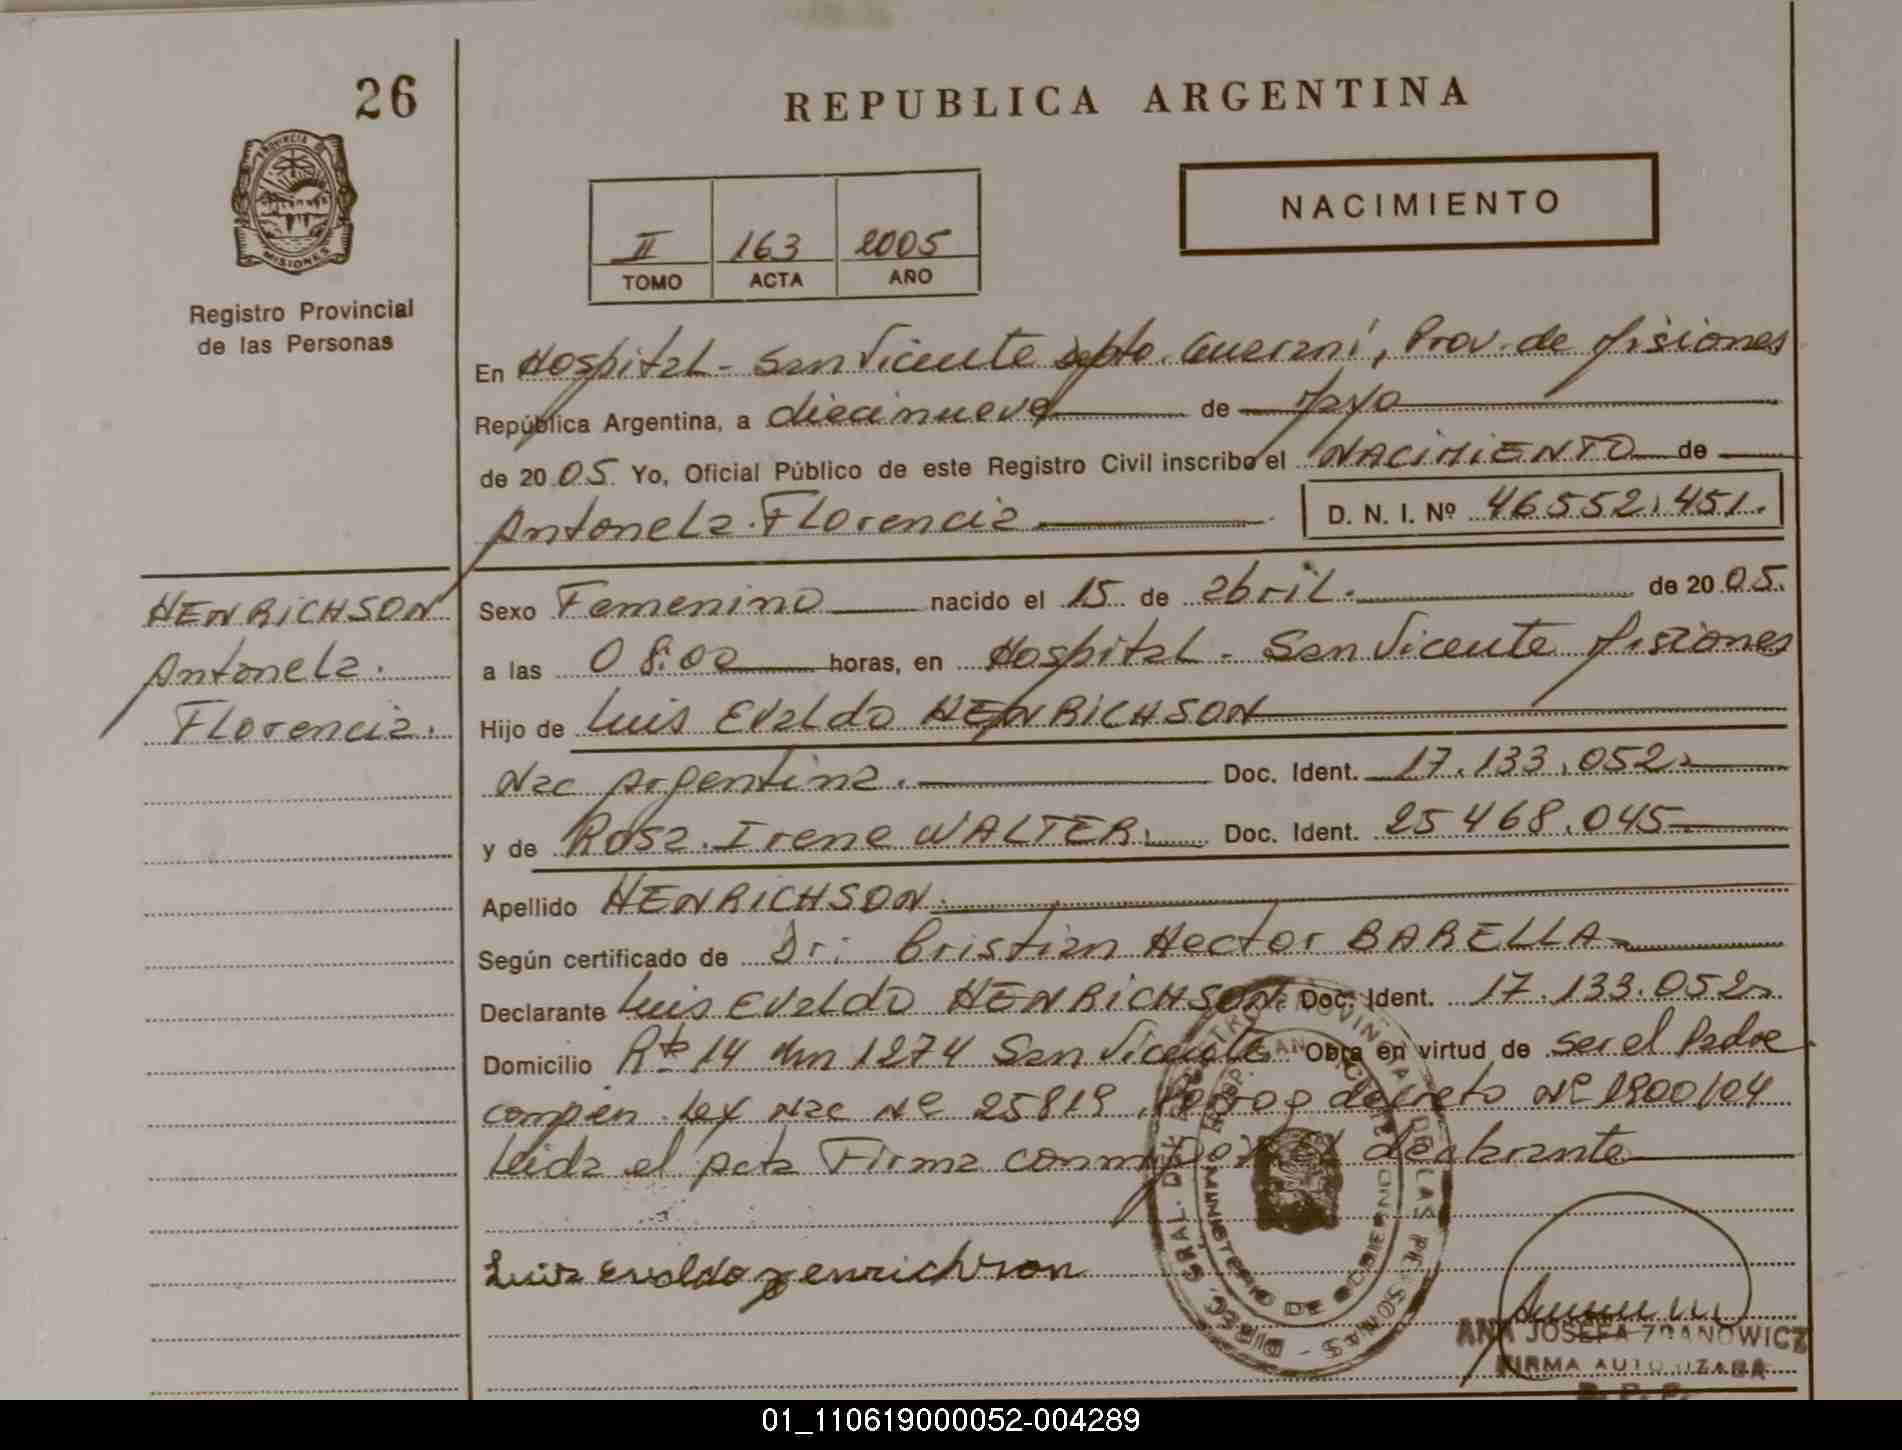 26
REPUBLICA ARGENTINA
PROVINCIA DE
MISIONES
Registro Provincial
de las Personas
NACIMIENTO
II 163 2005
TOMO ACTA AÑO
En Hospital - San Vicente Dpto. Guaraní, Prov. de Misiones
República Argentina, a diecinueve de Mayo
de 2005. Yo, Oficial Público de este Registro Civil inscribo el NACIMIENTO de
Antonela Florencia D. N. I. Nº 46552.451.
HENRICHSON
Antonela.
Florencia.
Sexo Femenino nacido el 15 de abril. de 2005.
a las 08:00 horas, en Hospital - San Vicente Misiones
Hijo de Luis Evaldo HENRICHSON
Nac Argentina. Doc. Ident. 17.133.052
y de Rosa Irene WALTER. Doc. Ident. 25468.045
Apellido HENRICHSON.
Según certificado de Dr: Cristian Hector BARELLA
Declarante Luis Evaldo HENRICHSON Doc. Ident. 17.133.052
Domicilio Rta 14 km 1274 San Vicente Obra en virtud de ser el Padre
Ley Nac Nº 25819 decreto Nº 1900/04
Leida el Acta Firma conmigo el declarante
Luis evaldo henrichson
ANA JOSEFA ZDANOWICZ
FIRMA AUTORIZADA
R. P. P.
DIREC. GRAL. DEL REGISTRO PROVINCIAL DE LAS PERSONAS
HOSP. SAN VICENTE
MINISTERIO DE GOBIERNO
01_110619000052-004289